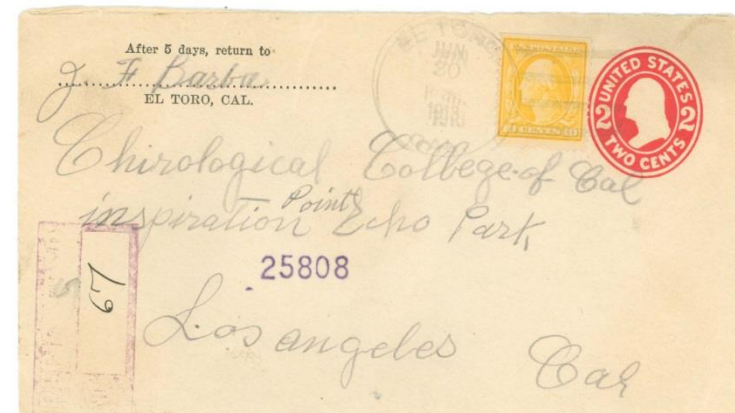 After 5 days, return to
J. F Barba
EL TORO, CAL.
EL TORO
JUN
20
UNITED STATES
2 2
TWO CENTS
Chirological College of Cal
inspiration Point Echo Park
25808
67
Los angeles
Cal